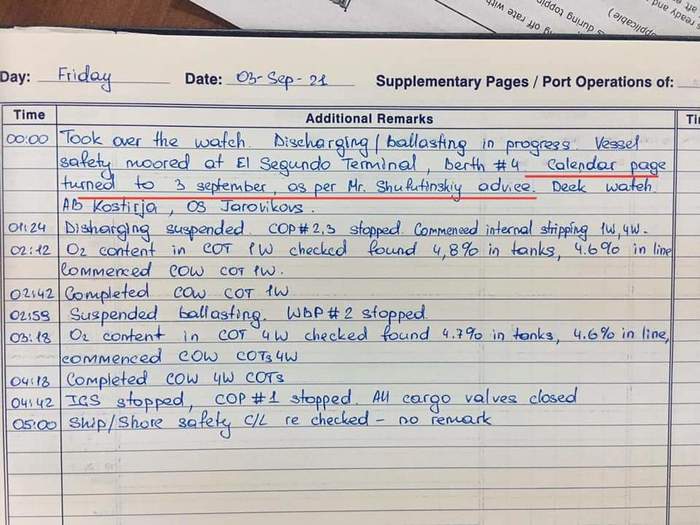 applicable)
s during topping
off rate with
ready and
aft
Day: Friday Date: 03-Sep-21 Supplementary Pages / Port Operations of:
Time Additional Remarks Ti
00:00 Took over the watch. Discharging/ballasting in progress. Vessel
safety moored at El Segundo Terminal, berth #4 Calendar page
turned to 3 september, as per Mr. Shulutinskiy advice. Deck watch
AB Kostirja, OS Jarovikovs.
01:24 Disharging suspended. COP#2,3 stopped. Commenced internal stripping 1W,4W.
02:12 O2 content in COT 1W checked found 4,8% in tanks, 4.6% in line
Commenced COW COT 1W.
02:42 Completed COW COT 1W
02:59 Suspended ballasting. WBP#2 stopped
03:18 O2 content in COT 4W checked found 4.7% in tanks, 4.6% in line,
commenced COW COTs4W
04:18 Completed COW 4W COTs
04:42 IGS stopped, COP#1 stopped. All cargo valves closed
05:00 Ship/Shore safety C/L re checked - no remark